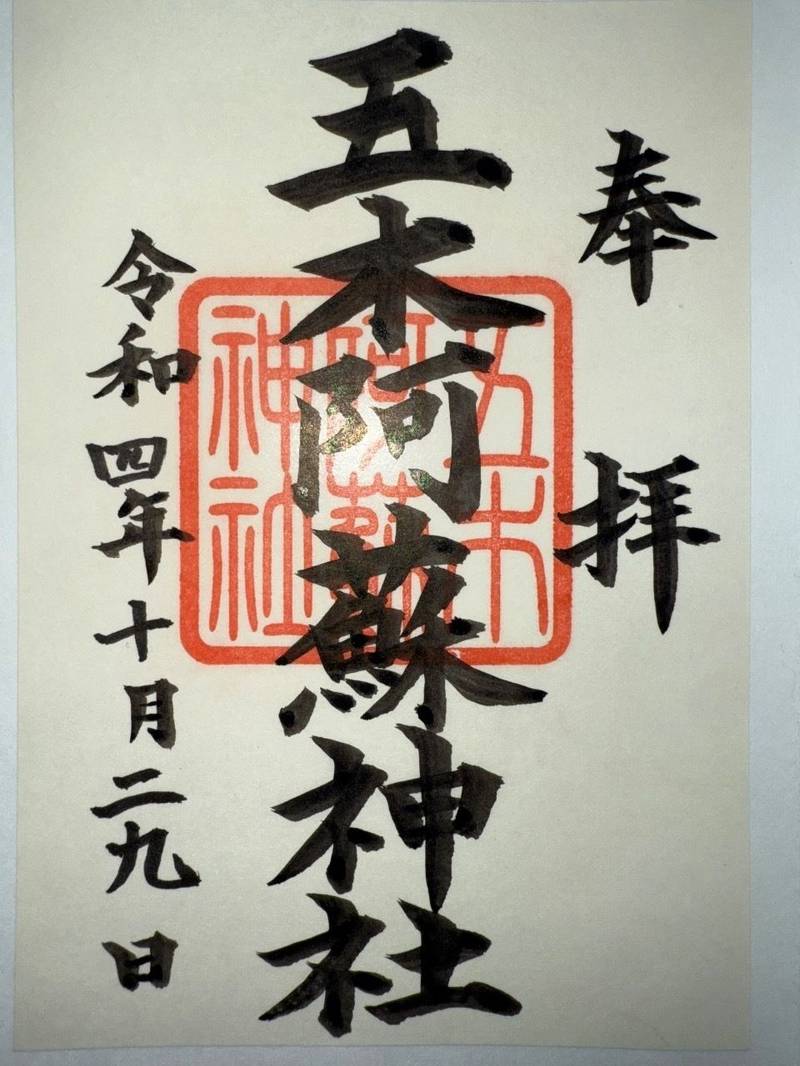 奉拝
五木阿蘇神社
五木
阿蘇
神社
令和四年十月二九日